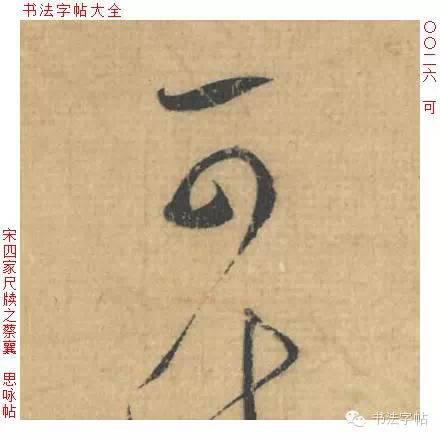 书法字帖大全
〇〇二六 可
可
宋四家尺牍之蔡襄 思咏帖
书法字帖